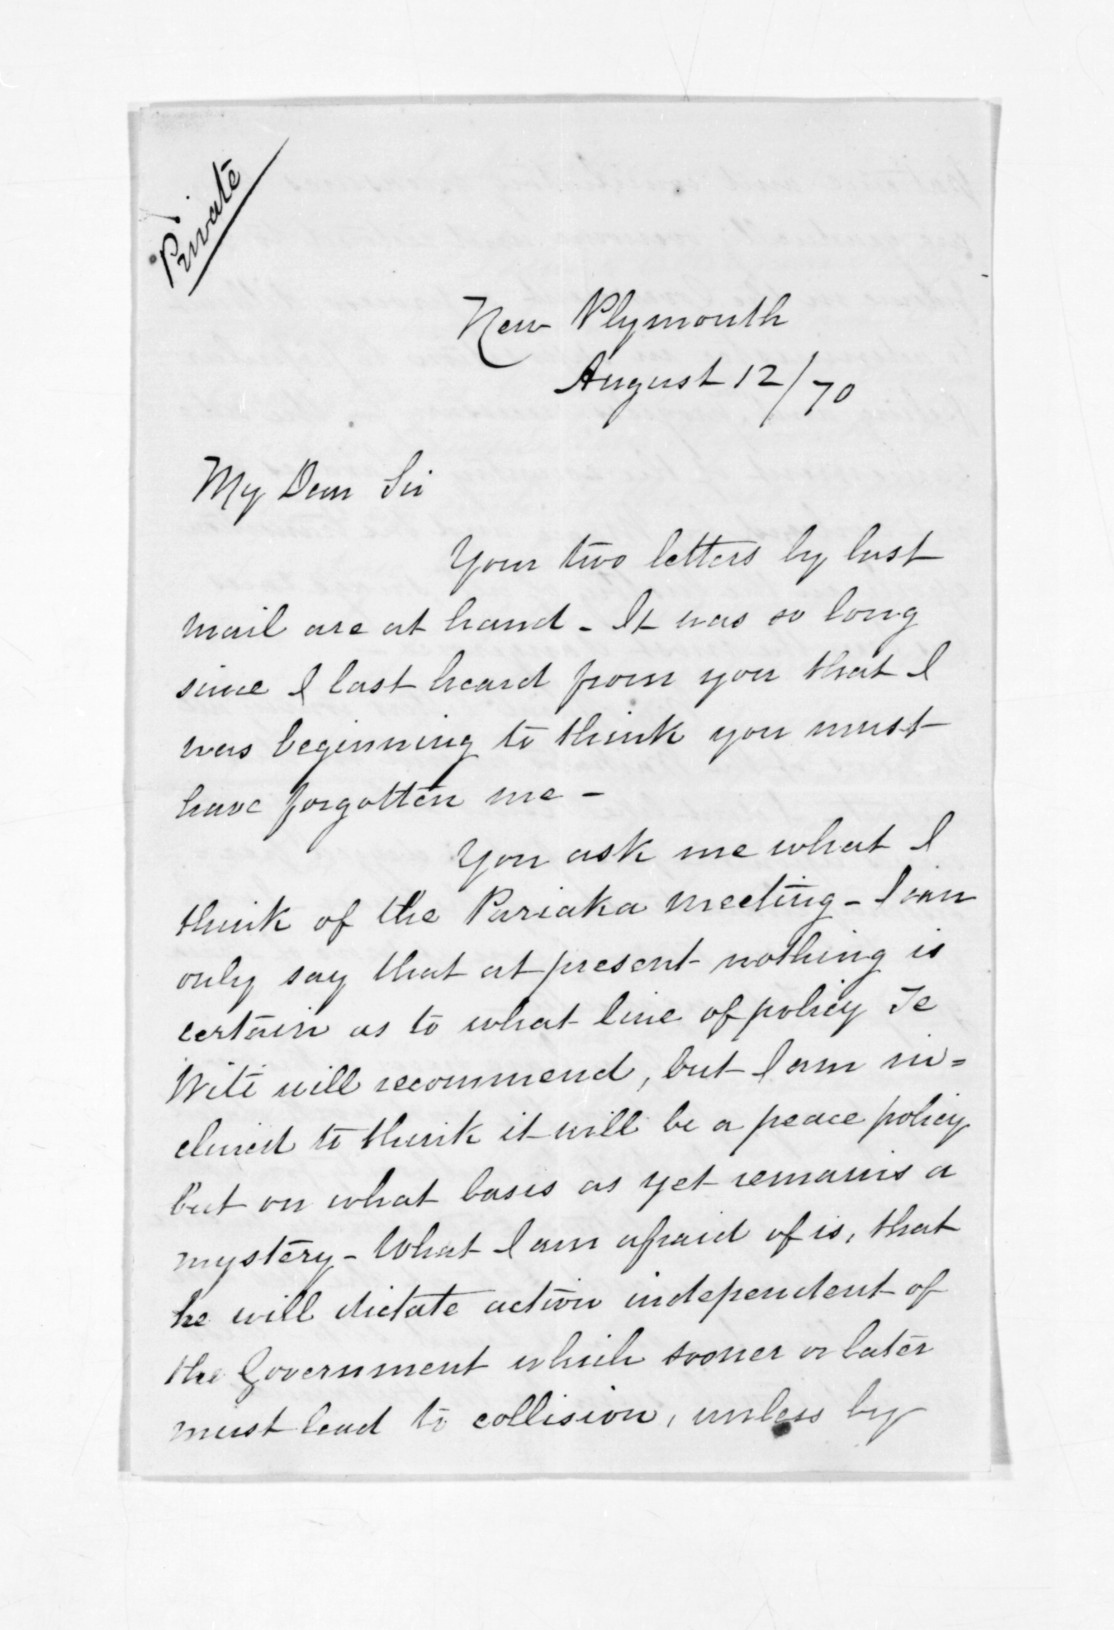 Private
New Plymouth
August 12/70
My Dear Sir
Your two letters by last
mail are at hand - It was so long
since I last heard from you that I
was beginning to think you must
have forgotten me -
You ask me what I
think of the Pariaka meeting - I can
only say that at present nothing is
certain as to what line of policy Te
Witi will recommend, but I am in=
clined to think it will be a peace policy
but on what basis as yet remains a
mystery - What I am afraid of is, that
he will dictate action independent of
the Government which sooner or later
must lead to collision, unless by